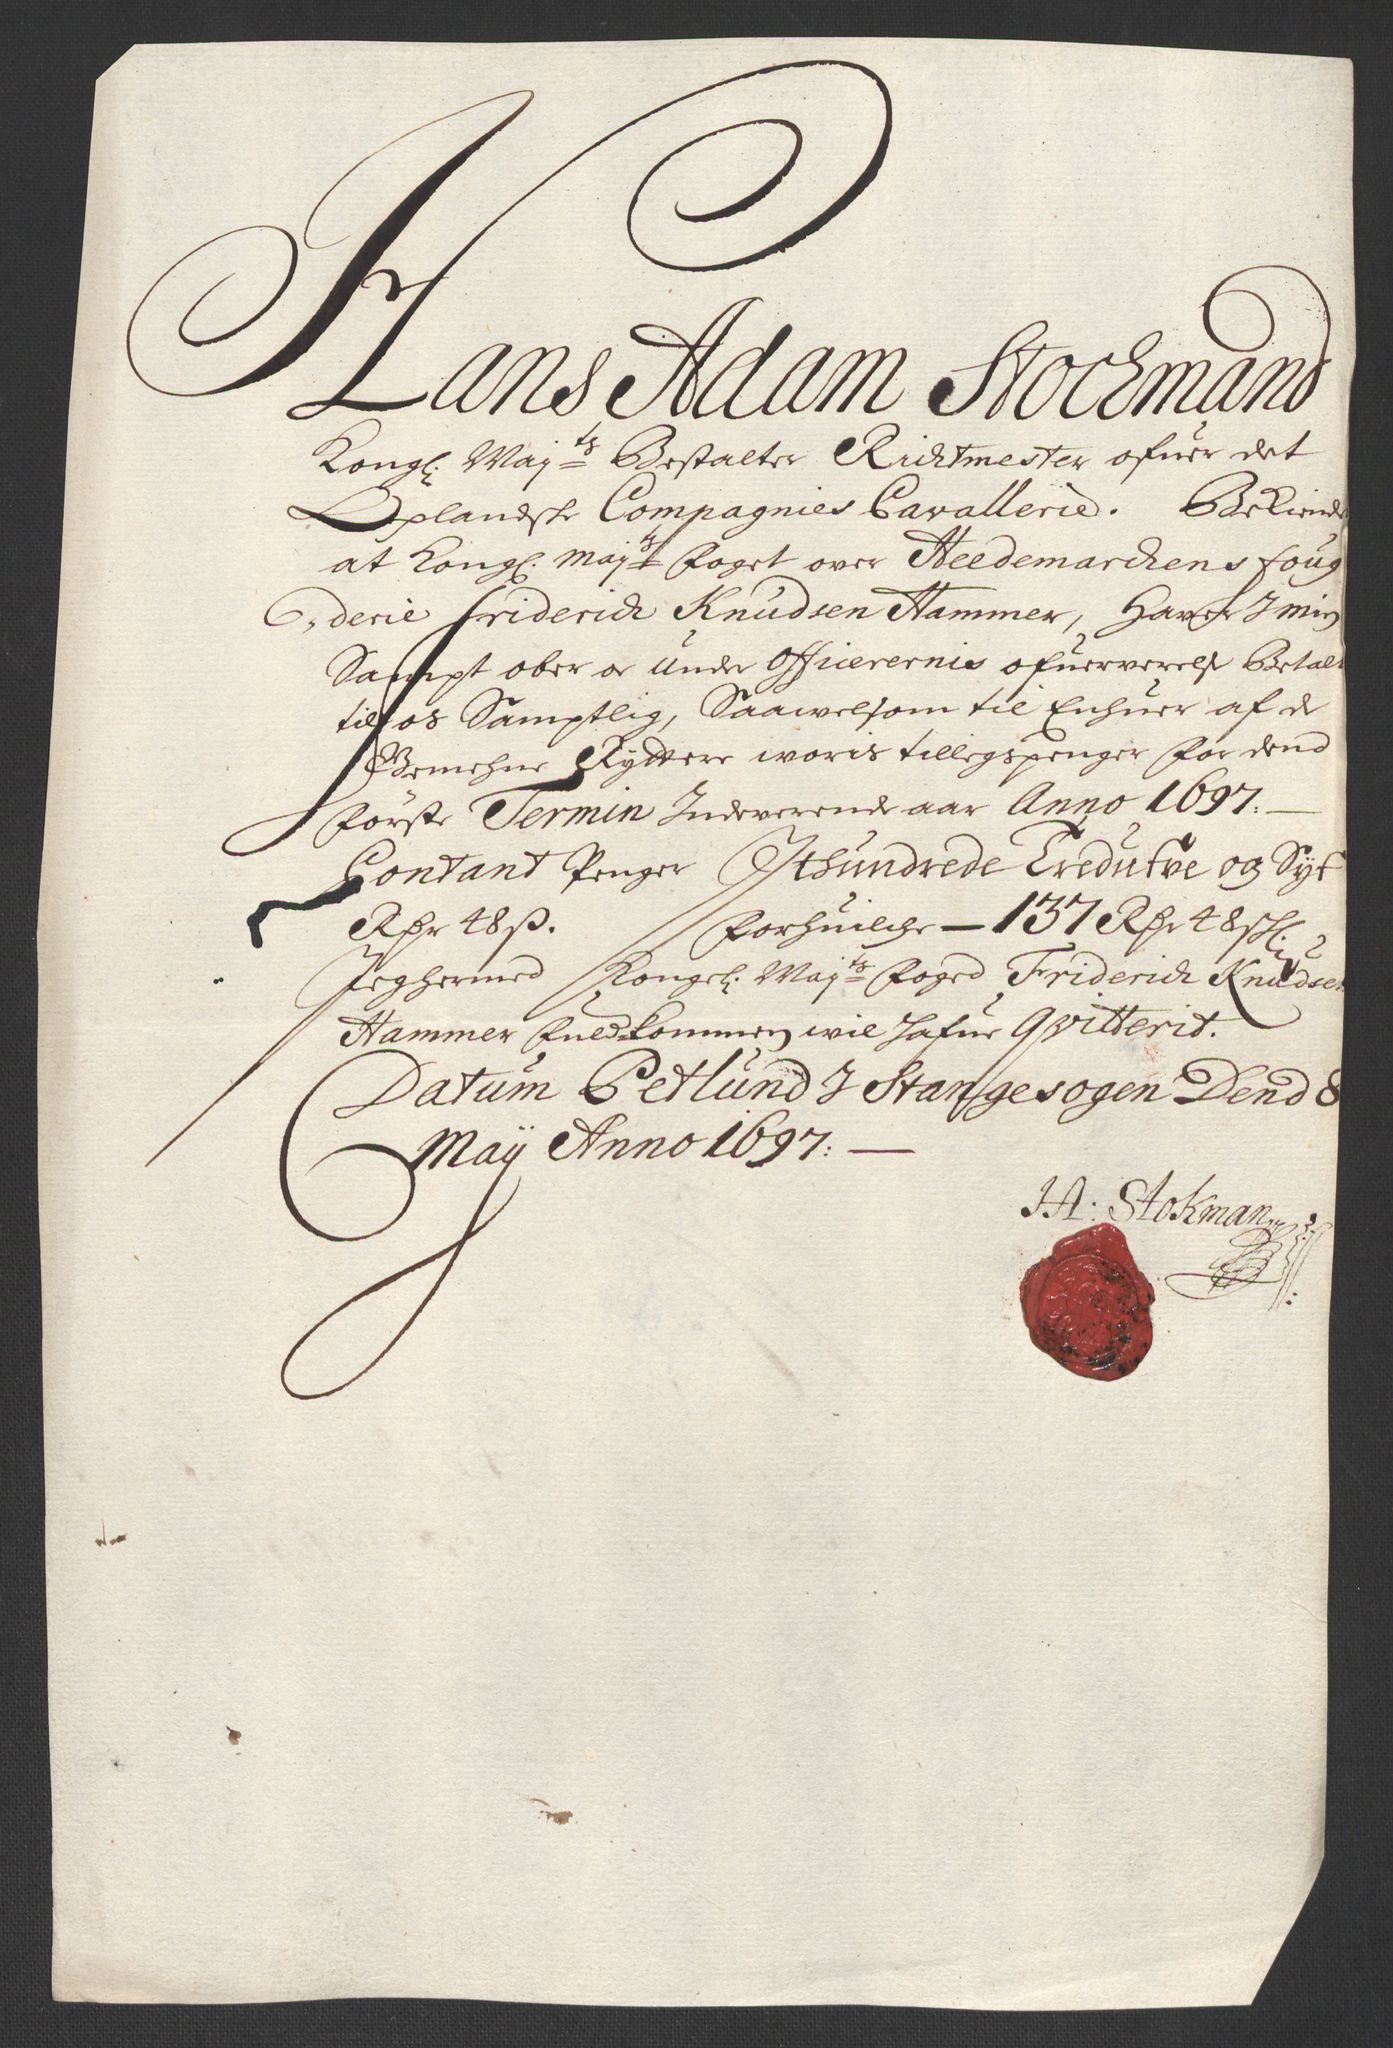 Hans Adam Stockmand
Kongl: May:ts Bestalter Richtmester ofuer det
Oplandske Compagnies Cavallerie. Bekiender
at Kongl: May:ts foget over Heedemarchens foug
derie Friderich Knudsen Hammer, Haver I min
Sampt ober oc Under Officerernis ofuerverelse Betalt
til os Samptlig, Saawelsom til Enhuer af de
Gemehne Ryttere woris tillegspenger for dend
förste Termin Indeverende aar Anno 1697: —
Contant Penger Ithundrede Tredutve og Syf
Rdr 48 ß. forhuilche — 137 Rdr 48 sl:
Jeg hermed Kongel: May:ts foged Friderich Knudsen
Hammer fuldkommen wil hafue Qvitterit.
Datum Petlund I Stange sogen Dend 8
Maÿ Anno 1697: —
HA: Stokman